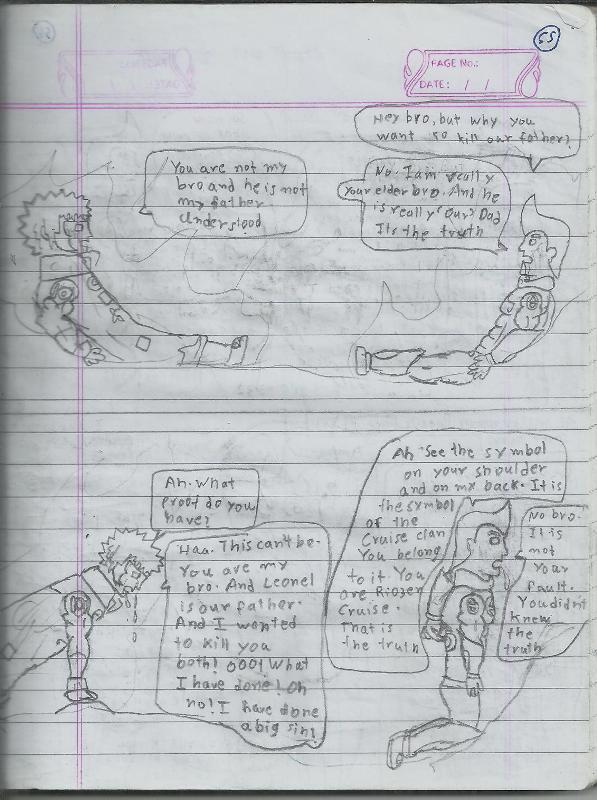 55
PAGE NO.:
DATE: / /
Hey bro, but why you
want so kill our father?
You are not my
bro and he is not
my father
understood
No. I am really
your elder bro. And he
is really (our) Dad
Its the truth
Ah. What
proof do you
have?
Ah See the symbol
on your shoulder
and on my back. It is
the symbol
of the
Cruise clan
You belong
to it. You
are Riozer
Cruise.
That is
the truth
Haa. This can't be.
You are my
bro. And Leonel
is our father.
And I wonted
to kill you
both! Ooo! What
I have done! Oh
no! I have done
a big sin!
No bro.
It is
not
your
fault.
You didn't
knew
the
truth